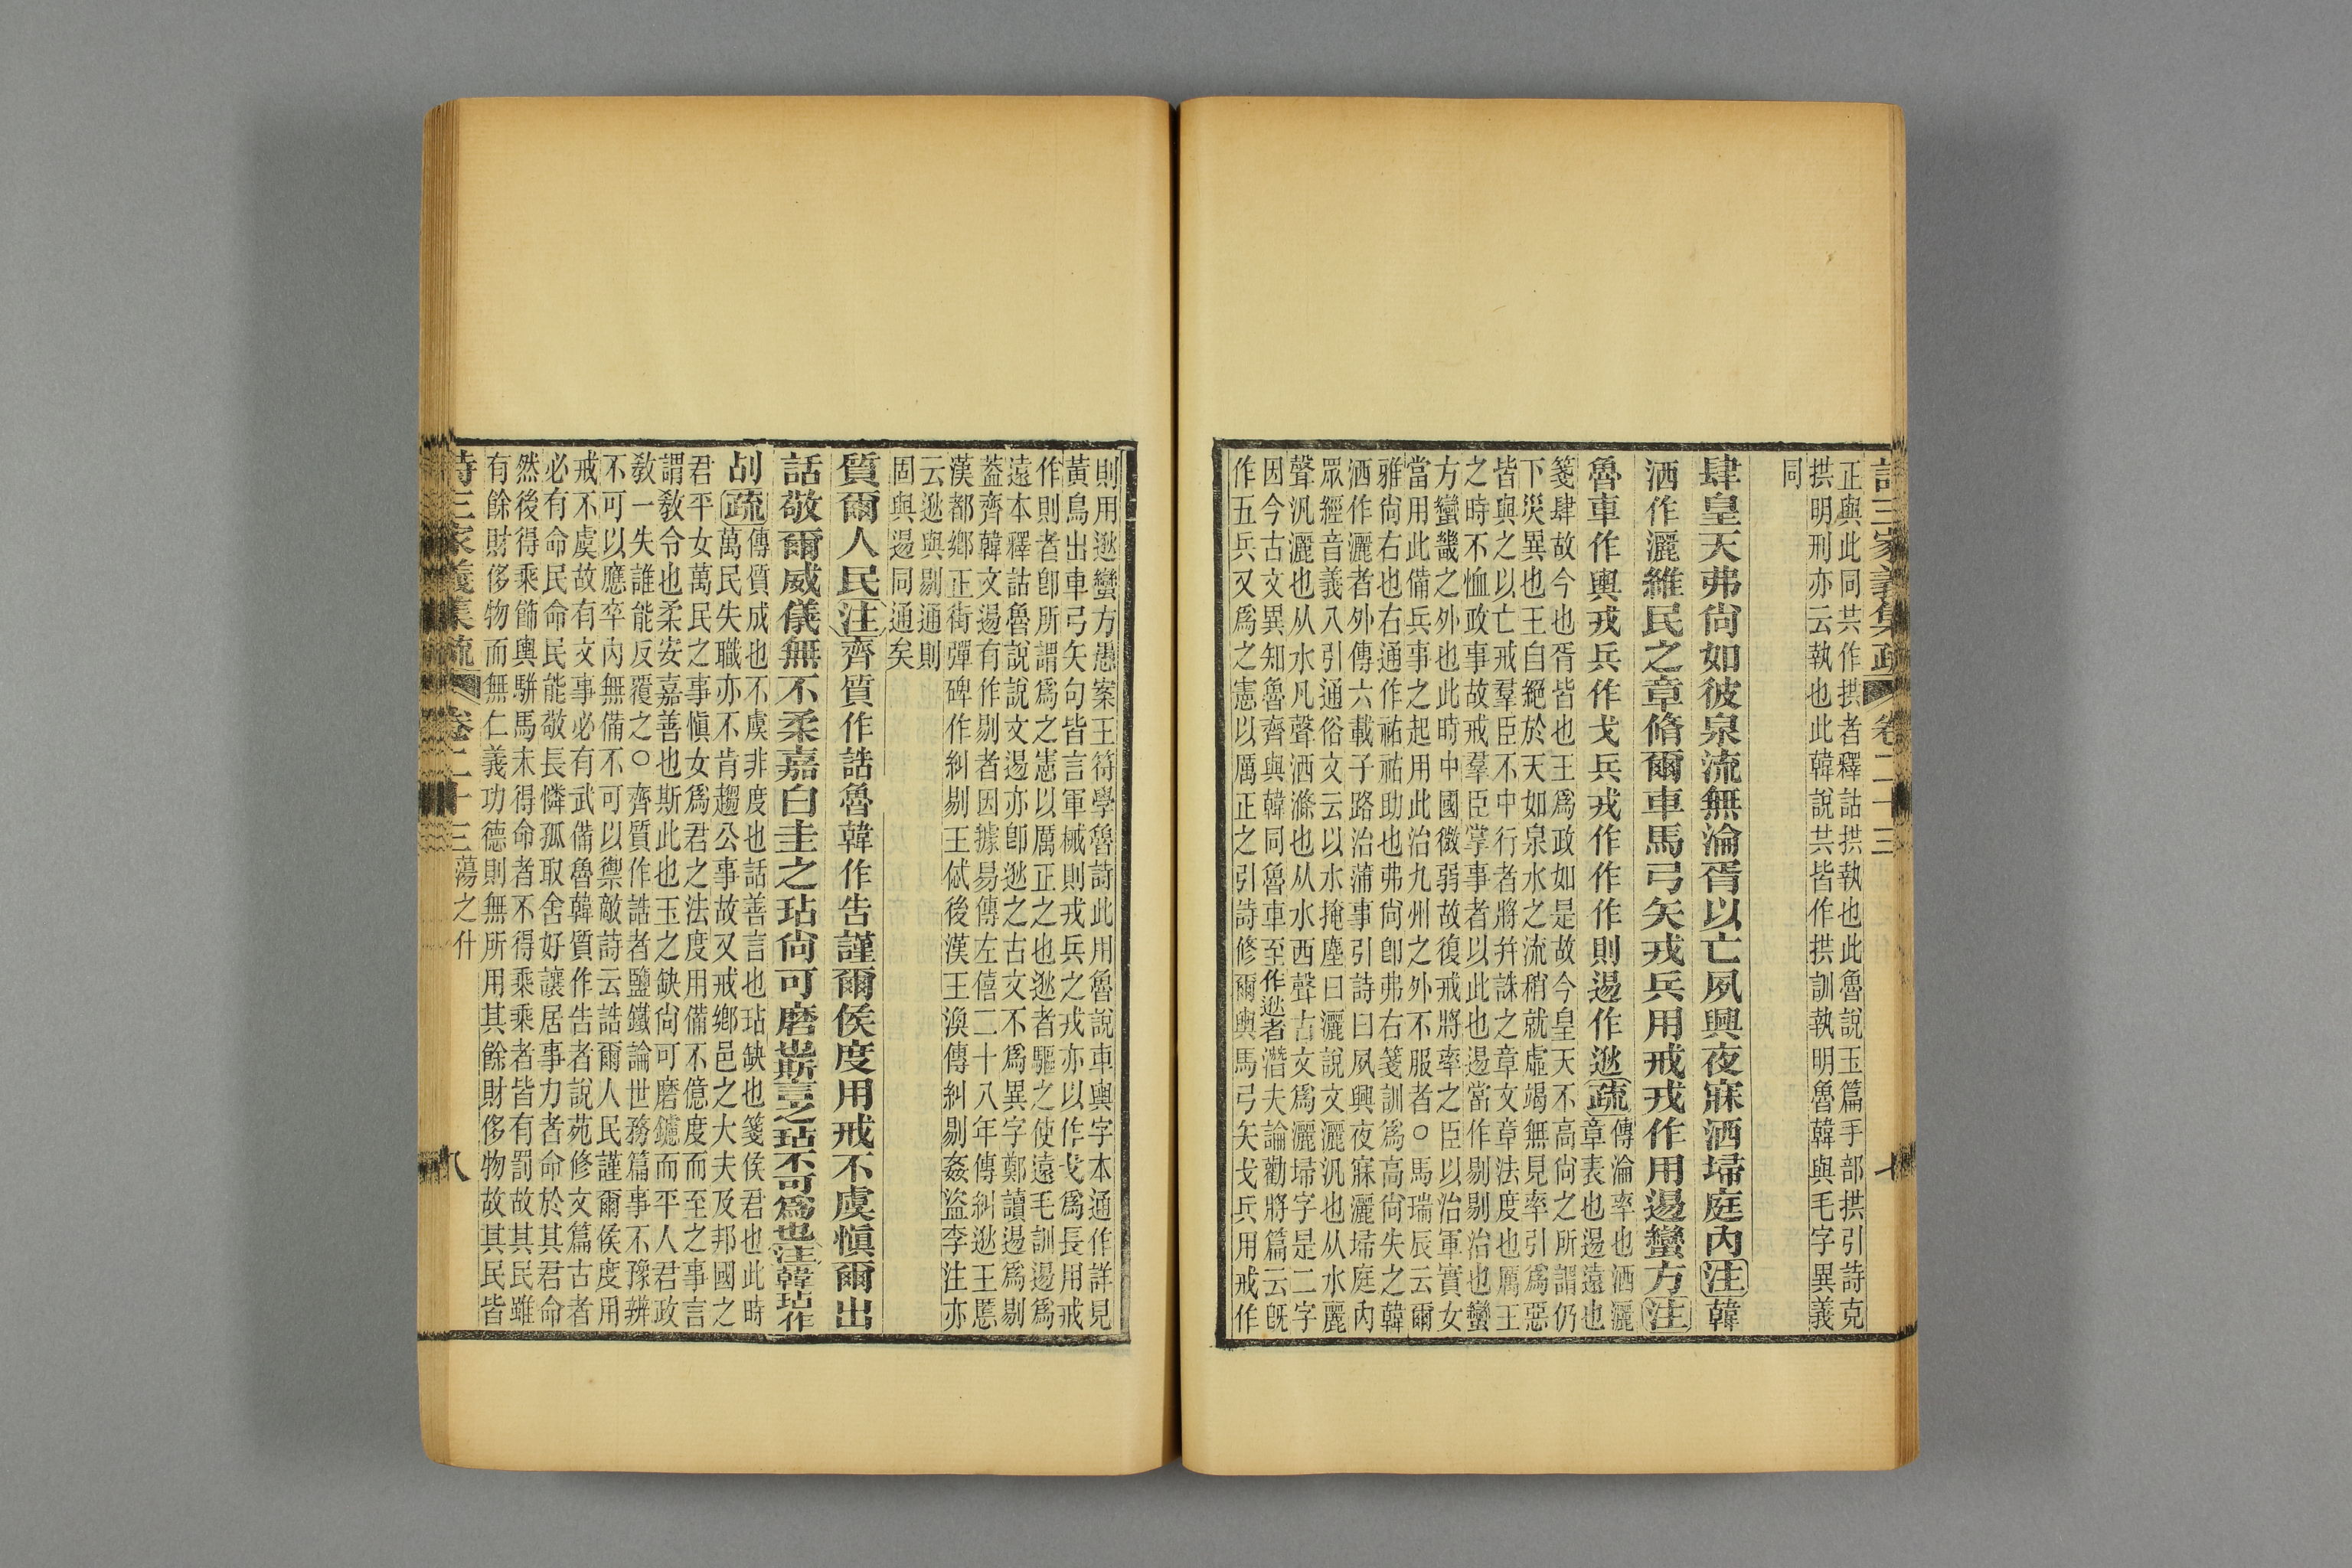 詩三家義集疏 卷二十三 七
正與此同共作拱者釋詁拱執也此魯說玉篇手部拱引詩克
拱明刑亦云執也此韓說共皆作拱訓執明魯韓與毛字異義
同
肆皇天弗尙如彼泉流無淪胥以亡夙興夜寐洒埽庭內注韓
洒作灑維民之章脩爾車馬弓矢戎兵用戒戎作用逷蠻方注
魯車作輿戎兵作戈兵戎作作作則逷作逖疏傳淪率也洒灑
章表也逷遠也
箋肆故今也胥皆也王爲政如是故今皇天不高尙之所謂仍
下災異也王自絕於天如泉水之流稍就虛竭無見率引爲惡
皆與之以亡戒羣臣不中行者將幷誅之章文章法度也厲王
之時不恤政事故戒羣臣掌事者以此也逷當作剔剔治也蠻
方蠻畿之外也此時中國微弱故復戒將率之臣以治軍實女
當用此備兵事之起用此治九州之外不服者○馬瑞辰云爾
雅尙右也右通作祐祐助也弗尙卽弗右箋訓爲高尙失之韓
洒作灑者外傳六載子路治蒲事引詩曰夙興夜寐灑埽庭內
眾經音義八引通俗文云以水掩塵曰灑說文灑汎也从水麗
聲汎灑也从水凡聲洒滌也从水西聲古文爲灑埽字是二字
因今古文異知魯齊與韓同魯車至作逖者潛夫論勸將篇云旣
作五兵又爲之憲以厲正之引詩修爾輿馬弓矢戈兵用戒作
則用逖蠻方愚案王符學魯詩此用魯說車輿字本通作詳見
黃鳥出車弓矢句皆言軍械則戎兵之戎亦以作戈爲長用戒
作則者卽所謂爲之憲以厲正之也逖者驅之使遠毛訓逷爲
遠本釋詁魯說說文逷亦卽逖之古文不爲異字鄭讀逷爲剔
蓋齊韓文逷有作剔者因據易傳左僖二十八年傳糾逖王慝
漢都鄉正街彈碑作糾剔王慝後漢王渙傳糾剔姦盜李注亦
云逖與剔通則
固與逷同通矣
質爾人民注齊質作誥魯韓作告謹爾侯度用戒不虞愼爾出
話敬爾威儀無不柔嘉白圭之玷尙可磨也斯言之玷不可爲也注韓玷作
㓠疏傳質成也不虞非度也話善言也玷缺也箋侯君也此時
萬民失職亦不肯趨公事故又戒鄉邑之大夫及邦國之
君平女萬民之事愼女爲君之法度用備不億度而至之事言
謂敎令也柔安嘉善也斯此也玉之缺尙可磨鑢而平人君政
敎一失誰能反覆之○齊質作誥者鹽鐵論世務篇事不豫辨
不可以應卒內無備不可以禦敵詩云誥爾人民謹爾侯度用
戒不虞故有文事必有武備魯韓質作告者說苑修文篇古者
必有命民命民能敬長憐孤取舍好讓居事力者命於其君命
然後得乘飾輿駢馬未得命者不得乘乘者皆有罰故其民雖
有餘財侈物而無仁義功德則無所用其餘財侈物故其民皆
詩三家義集疏 卷二十三 蕩之什 八